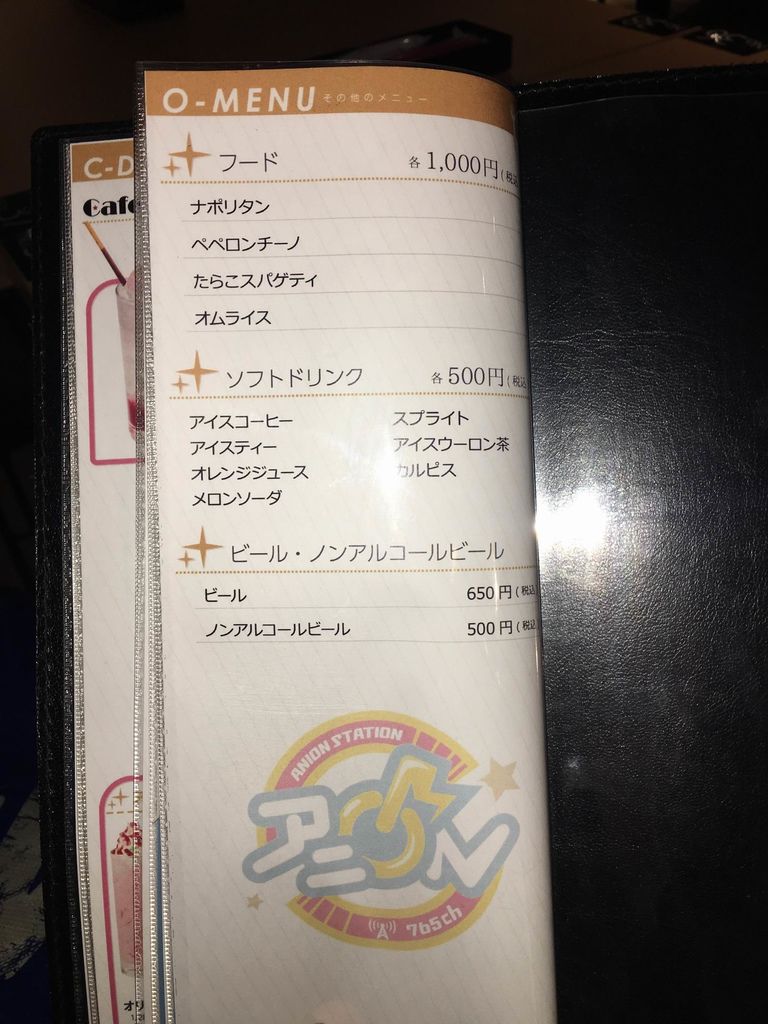 O-MENU その他のメニュー
フード 各1,000円(税込
ナポリタン
ペペロンチーノ
たらこスパゲティ
オムライス
ソフトドリンク 各500円(税込
アイスコーヒー スプライト
アイスティー アイスウーロン茶
オレンジジュース カルピス
メロンソーダ
ビール・ノンアルコールビール
ビール 650円(税込
ノンアルコールビール 500円(税込
ANION STATION
アニON
765ch
C-D
Cafe
オリ